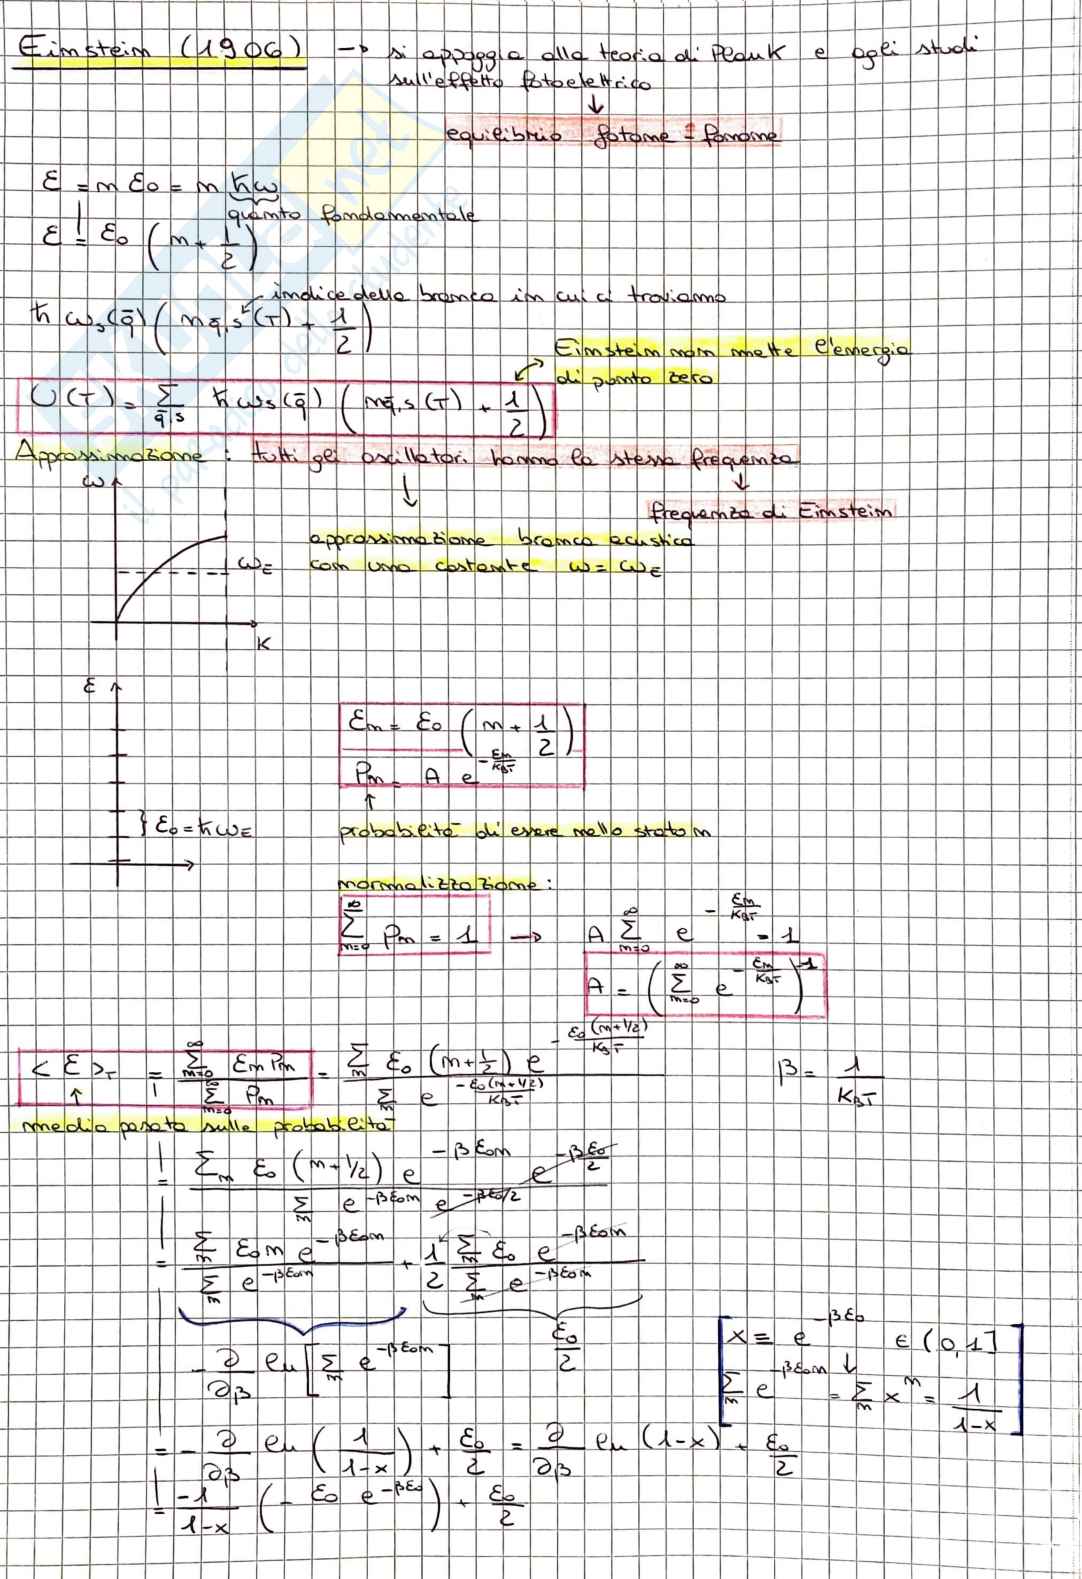 Einstein (1906) → si appoggia alla teoria di Plank e agli studi
sull'effetto fotoelettrico
↓
equilibrio fotone - fonone
ε = n ε₀ = n ħω
quanto fondamentale
ε = ε₀ (n + 1/2)
indice della branca in cui ci troviamo
ħ ωₛ(q̄) (n q̄,s (T) + 1/2)
Einstein non mette l'energia
di punto zero
U(T) = Σ q̄,s ħωₛ(q̄) (n q̄,s (T) + 1/2)
Approssimazione : tutti gli oscillatori hanno la stessa frequenza
ω
↓ ↓
frequenza di Einstein
approssimazione branca acustica
ω_E con una costante ω = ω_E
K
ε
εₙ = ε₀ (n + 1/2)
Pₙ = A e^(-εₙ/K_BT)
↑
} ε₀ = ħω_E
probabilità di essere nello stato n
normalizzazione :
Σ_(n=0)^∞ Pₙ = 1 → A Σ_(n=0)^∞ e^(-εₙ/K_BT) = 1
A = (Σ_(n=0)^∞ e^(-εₙ/K_BT))^-1
<ε>_T = Σ_(n=0)^∞ εₙPₙ / Σ_(n=0)^∞ Pₙ = Σ_n ε₀ (n+1/2) e^(-ε₀(n+1/2)/K_BT) / Σ_n e^(-ε₀(n+1/2)/K_BT) β = 1/K_BT
↑
media pesata sulle probabilità
= Σ_n ε₀ (n+1/2) e^(-βε₀n) e^(-βε₀/2) / Σ_n e^(-βε₀n) e^(-βε₀/2)
= Σ_n ε₀n e^(-βε₀n) / Σ_n e^(-βε₀n) + 1/2 Σ_n ε₀ e^(-βε₀n) / Σ_n e^(-βε₀n)
- ∂/∂β ln [Σ_n e^(-βε₀n)] ε₀/2
[x ≡ e^(-βε₀) ∈ (0,1]
Σ_n e^(-βε₀n) ↓ = Σ_n xⁿ = 1/(1-x)]
= - ∂/∂β ln (1/(1-x)) + ε₀/2 = ∂/∂β ln (1-x) + ε₀/2
= -1/(1-x) (- ε₀ e^(-βε₀)) + ε₀/2